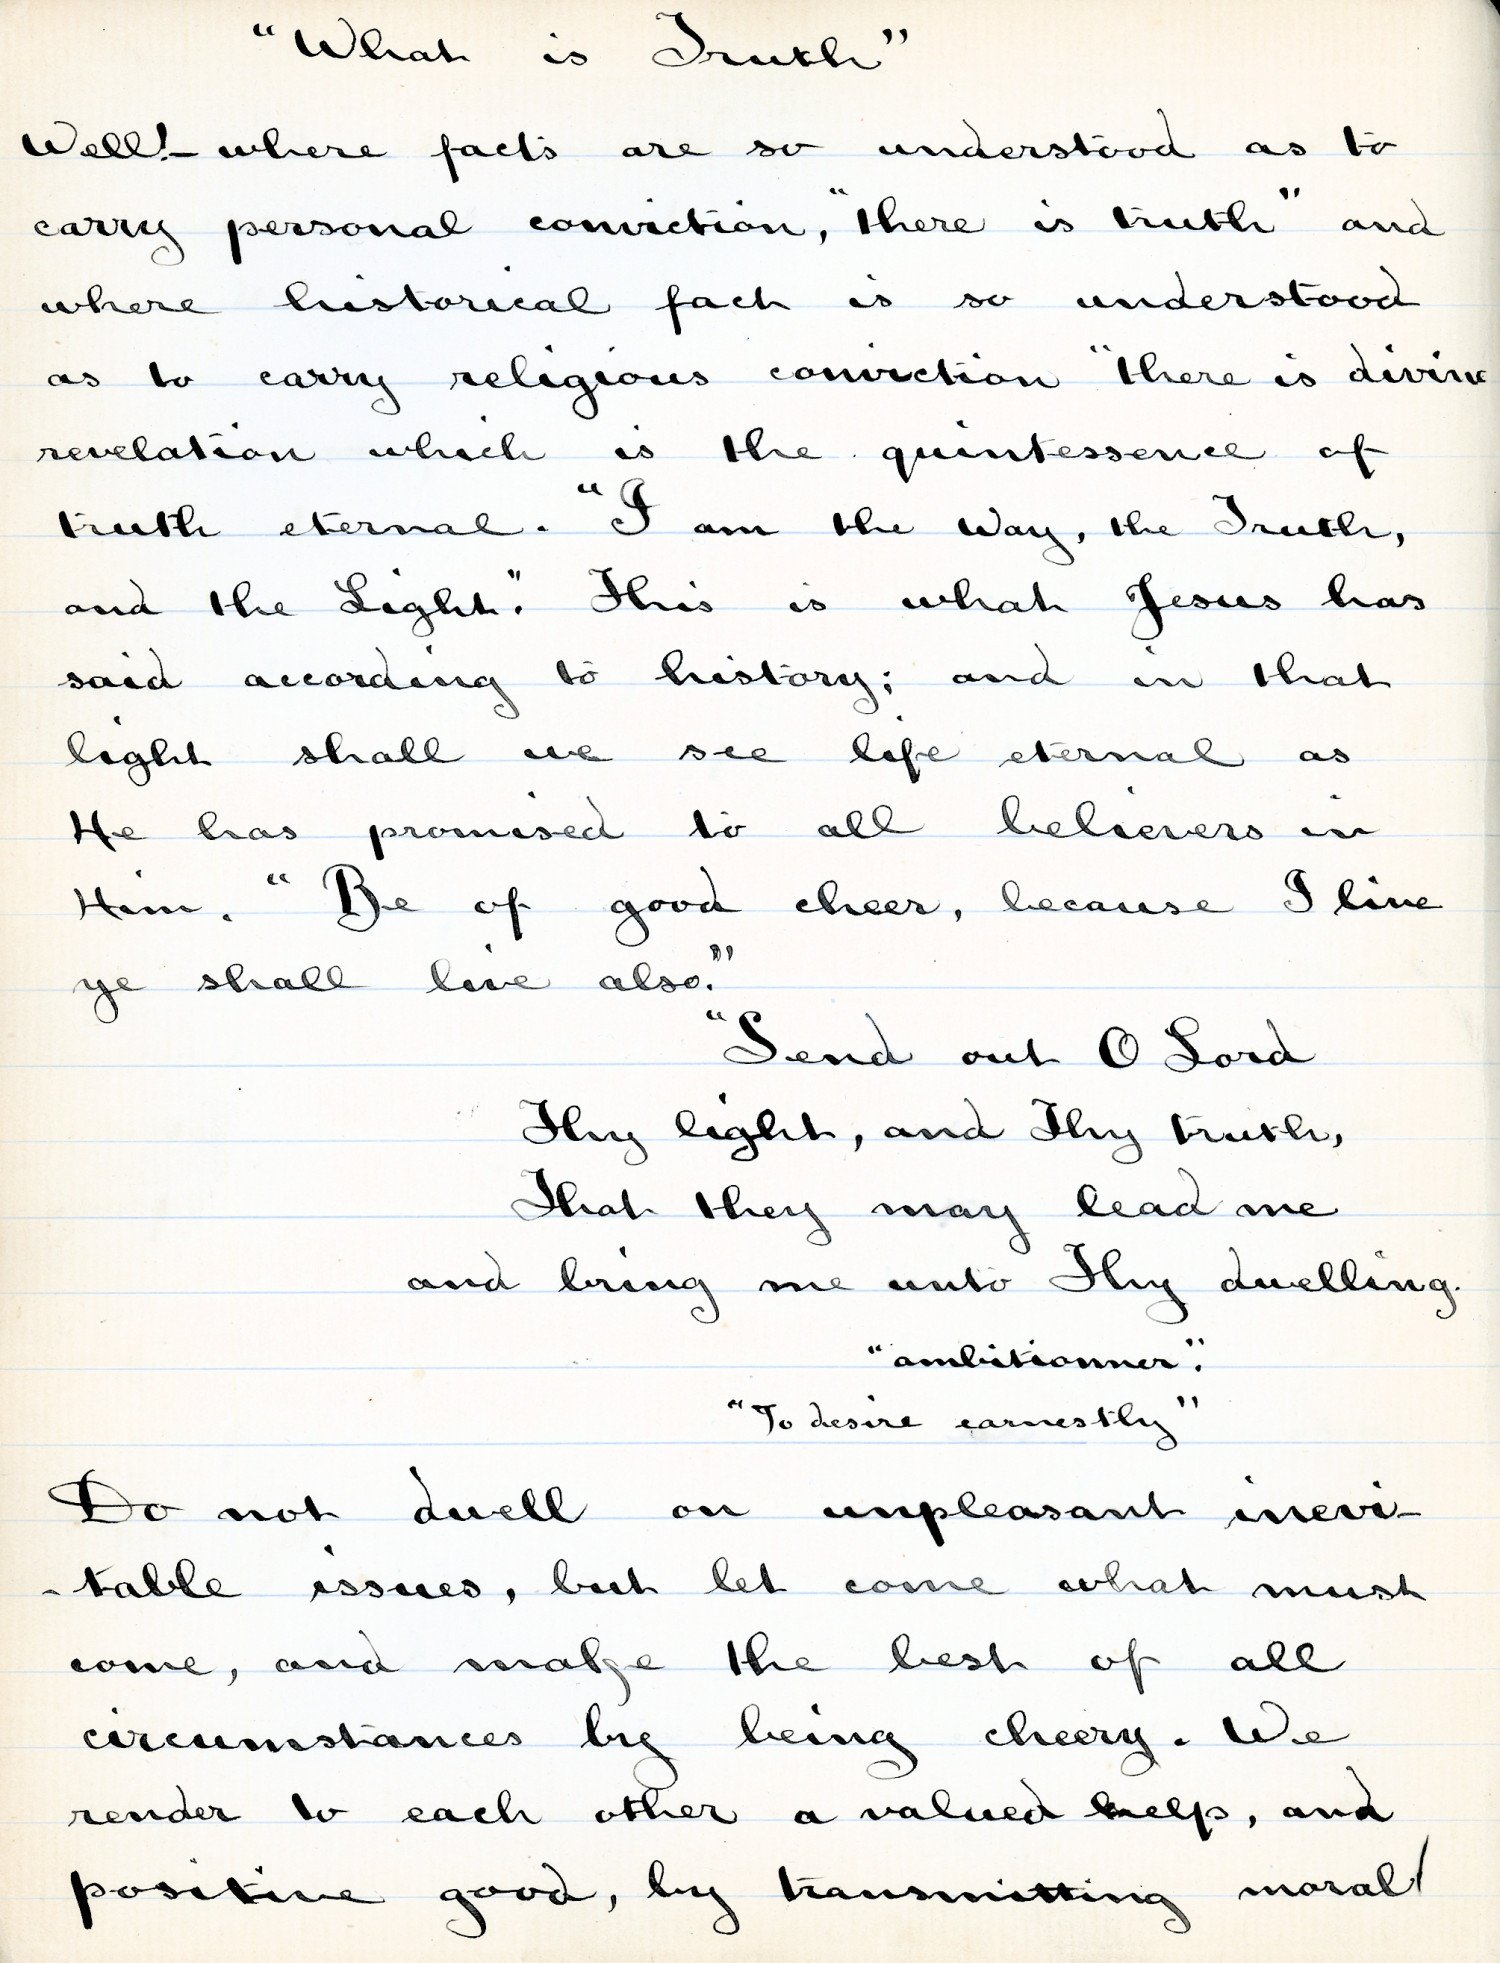 "What is Truth"
Well!- where facts are so understood as to
carry personal conviction, "there is truth" and
where historical fact is so understood
as to carry religious conviction "there is divine
revelation which is the quintessence of
truth eternal. "I am the Way, the Truth,
and the Light". This is what Jesus has
said according to history; and in that
light shall we see life eternal as
He has promised to all believers in
Him. "Be of good cheer, because I live
ye shall live also."
"Send out O Lord
Thy light, and Thy truth,
That they may lead me
and bring me unto Thy dwelling.
"ambitionner".
"To desire earnestly"
Do not dwell on unpleasant inevi-
-table issues, but let come what must
come, and make the best of all
circumstances by being cheery. We
render to each other a valued help, and
positive good, by transmitting moral